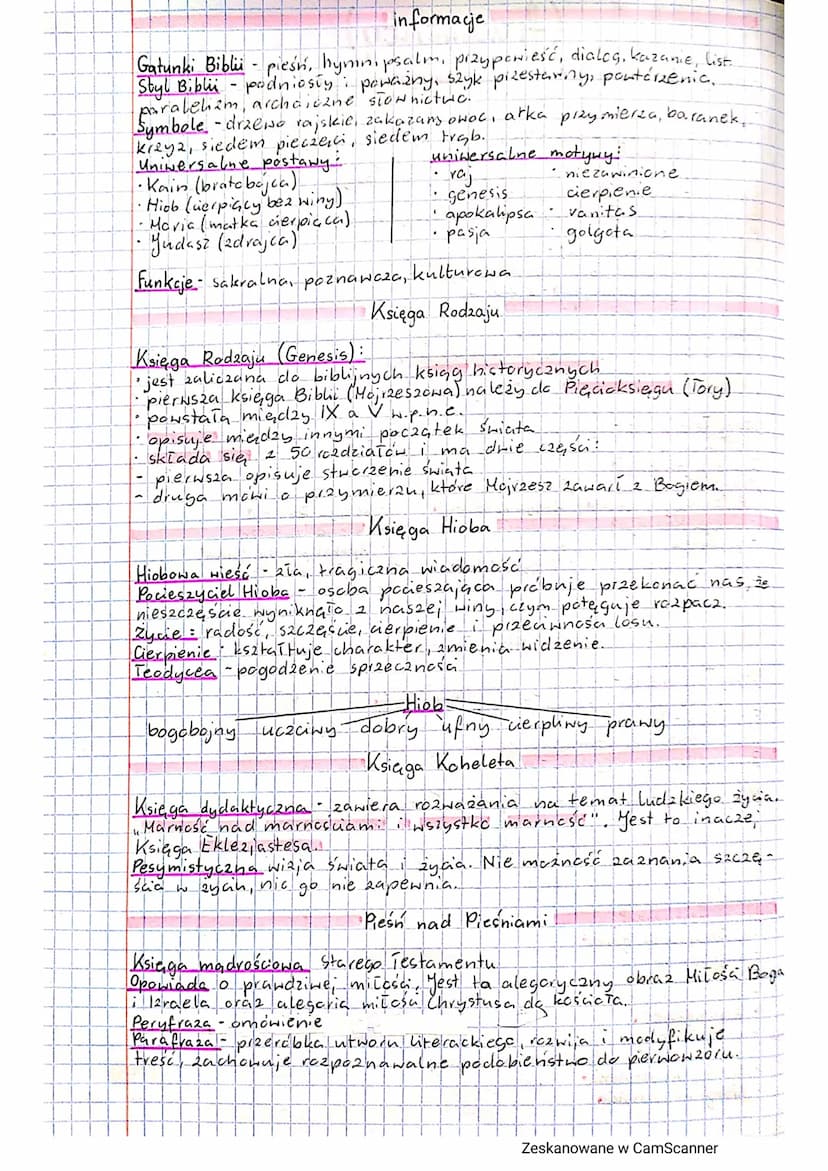 informacje
Gatunki Biblii - pieśń, hymn, psalm, przypowieść, dialog, kazanie, list
Styl Biblii - podniosły i poważny, szyk przestawny, powtórzenia,
paralelizm, archaiczne słownictwo.
Symbole - drzewo rajskie, zakazany owoc, arka przymierza, baranek,
krzyż, siedem pieczęci, siedem trąb.
Uniwersalne postawy: uniwersalne motywy:
· Kain (bratobójca) · raj · niezawinione
· Hiob (cierpiący bez winy) · genesis cierpienie
· Maria (matka cierpiąca) · apokalipsa · vanitas
· Judasz (zdrajca) · pasja · golgota
Funkcje - sakralna, poznawcza, kulturowa
Księga Rodzaju
Księga Rodzaju (Genesis):
· jest zaliczana do biblijnych ksiąg historycznych
· pierwsza księga Biblii (Mojżeszowa) należy do Pięcioksięgu (Tory)
· powstała między IX a V w.p.n.e.
· opisuje między innymi początek świata
· składa się z 50 rozdziałów i ma dwie części:
- pierwsza opisuje stworzenie świata
- druga mówi o przymierzu, które Mojżesz zawarł z Bogiem.
Księga Hioba
Hiobowa wieść - zła, tragiczna wiadomość
Pocieszyciel Hioba - osoba pocieszająca próbuje przekonać nas, że
nieszczęście wyniknęło z naszej winy, czym potęguje rozpacz.
Życie: radość, szczęście, cierpienie i przeciwności losu.
Cierpienie - kształtuje charakter, zmienia widzenie.
Teodycea - pogodzenie sprzeczności
Hiob
bogobojny uczciwy dobry ufny cierpliwy prawy
Księga Koheleta
Księga dydaktyczna - zawiera rozważania na temat ludzkiego życia.
„Marność nad marnościami i wszystko marność". Jest to inaczej
Księga Eklezjastesa.
Pesymistyczna wizja świata i życia. Nie możność zaznania szczę-
ścia w życiu, nic go nie zapewnia.
Pieśń nad Pieśniami
Księga mądrościowa Starego Testamentu
Opowiada o prawdziwej miłości. Jest to alegoryczny obraz Miłości Boga
i Izraela oraz alegoria miłości Chrystusa do kościoła.
Peryfraza - omówienie
Parafraza - przeróbka utworu literackiego, rozwija i modyfikuje
treść, zachowuje rozpoznawalne podobieństwo do pierwowzoru.
Zeskanowane w CamScanner